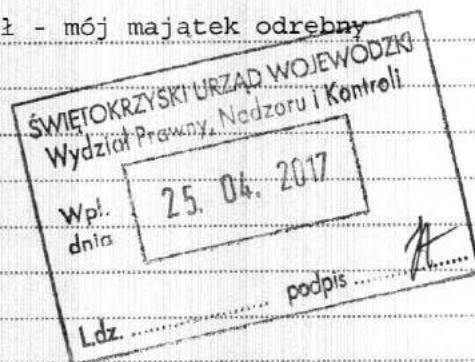 ł - mój majątek odrębny
ŚWIĘTOKRZYSKI URZĄD WOJEWÓDZKI
Wydział Prawny, Nadzoru i Kontroli
Wpł.
dnia
25. 04. 2017
L.dz. .................... podpis ....................